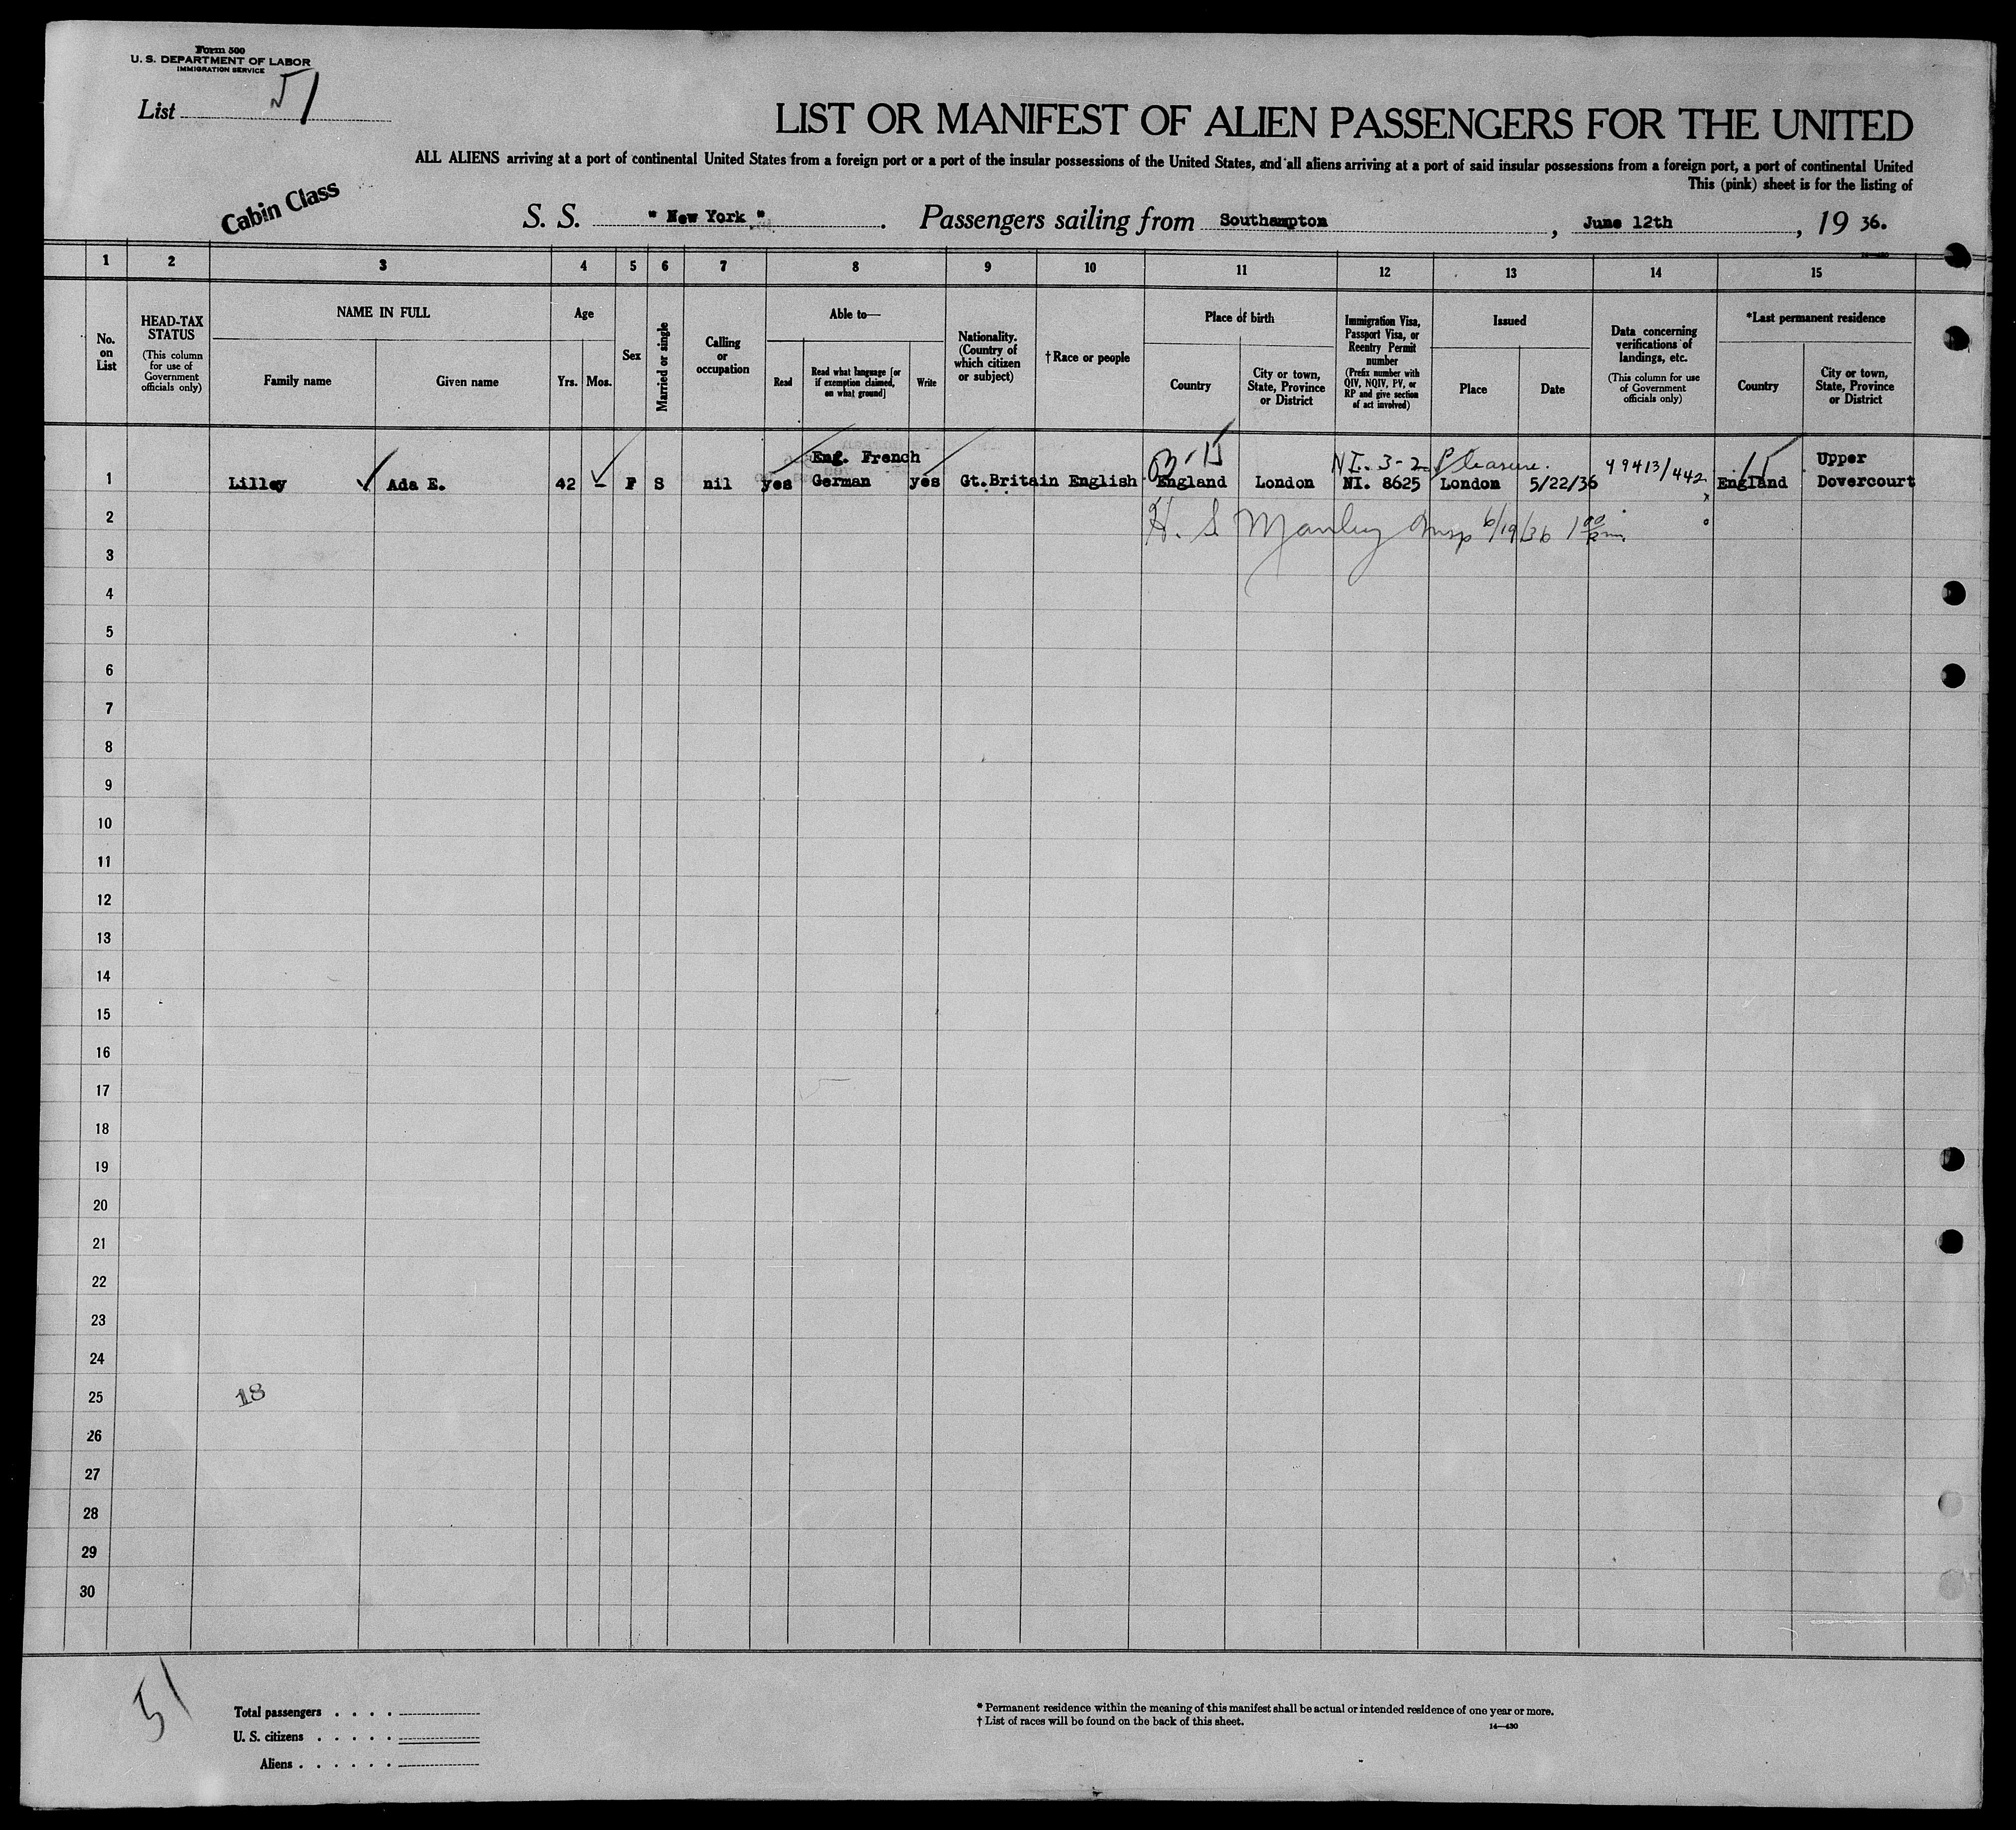 Form 500
U. S. DEPARTMENT OF LABOR
IMMIGRATION SERVICE
List 51
LIST OR MANIFEST OF ALIEN PASSENGERS FOR THE UNITED
ALL ALIENS arriving at a port of continental United States from a foreign port or a port of the insular possessions of the United States, and all aliens arriving at a port of said insular possessions from a foreign port, a port of continental United
This (pink) sheet is for the listing of
Cabin Class
S. S. " New York " . Passengers sailing from Southampton , June 12th , 19 36.
1 2 3 4 5 6 7 8 9 10 11 12 13 14 15
No. on List
HEAD-TAX STATUS
(This column for use of Government officials only)
NAME IN FULL
Family name
Given name
Age
Yrs. Mos.
Sex
Married or single
Calling or occupation
Able to—
Read
Read what language [or if exemption claimed, on what ground]
Write
Nationality. (Country of which citizen or subject)
†Race or people
Place of birth
Country
City or town, State, Province or District
Immigration Visa, Passport Visa, or Reentry Permit number
(Prefix number with QIV, NQIV, PV, or RP and give section of act involved)
Issued
Place
Date
Data concerning verifications of landings, etc.
(This column for use of Government officials only)
*Last permanent residence
Country
City or town, State, Province or District
Eng. French NI. 3-2 Pleasure. 99413/442 Upper
1 Lilley Ada E. 42 - F S nil yes German yes Gt.Britain English England London NI. 8625 London 5/22/36 England Dovercourt
2 H. S. Manley Insp 6/19/36
3
4
5
6
7
8
9
10
11
12
13
14
15
16
17
18
19
20
21
22
23
24
25 18
26
27
28
29
30
51
Total passengers . . . .
U. S. citizens . . . . .
Aliens . . . . . .
* Permanent residence within the meaning of this manifest shall be actual or intended residence of one year or more.
† List of races will be found on the back of this sheet.
14—430